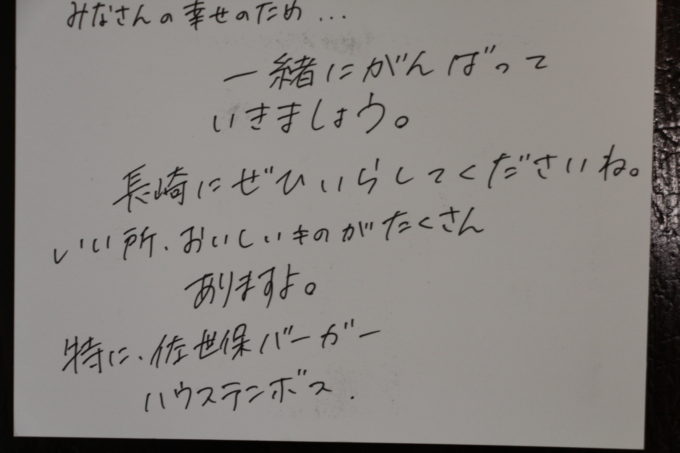 みなさんの幸せのため...
一緒にがんばって
いきましょう。
長崎にぜひいらしてくださいね。
いい所、おいしいものがたくさん
ありますよ。
特に、佐世保バーガー
ハウステンボス.